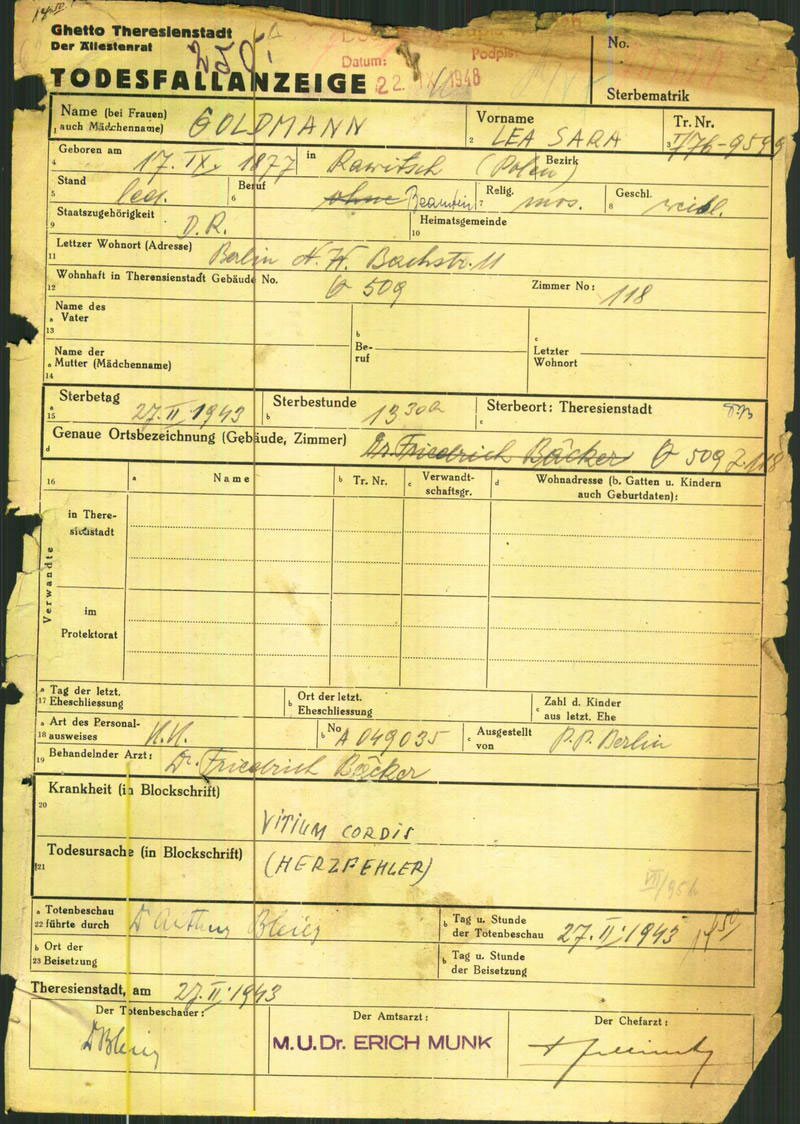 Ghetto Theresienstadt
Der Ältestenrat
Datum: Podpis:
22. IX. 1948
TODESFALLANZEIGE
No.
Sterbematrik
Name (bei Frauen) GOLDMANN
1 auch Mädchenname)
Vorname
2 LEA SARA
Tr. Nr.
3 I/76-9599
Geboren am
4 17. IX. 1877 in Rawitsch (Polen) Bezirk
Stand
5 led.
Beruf
6 ohne Beamtin
Relig.
7 mos.
Geschl.
8 weibl.
Staatszugehörigkeit
9 D.R.
Heimatsgemeinde
10
Lettzer Wohnort (Adresse)
11 Berlin N.W. Bachstr. 11
Wohnhaft in Therensienstadt Gebäude No.
12 Q 509
Zimmer No: 118
Name des
a Vater
13
Name der
a Mutter (Mädchenname)
14
b
Be-
ruf
c
Letzter
Wohnort
Sterbetag
a
15 27. II. 1943
Sterbestunde
b 13 30
Sterbeort: Theresienstadt
c
Genaue Ortsbezeichnung (Gebäude, Zimmer) Dr. Friedrich Bäcker Q 509 Z. 118
d
16 a Name b Tr. Nr. c Verwandt-
schaftsgr.
d Wohnadresse (b. Gatten u. Kindern
auch Geburtdaten):
Verwandte
in There-
sienstadt
im
Protektorat
a Tag der letzt.
17 Eheschliessung
b Ort der letzt.
Eheschliessung
c Zahl d. Kinder
aus letzt. Ehe
a Art des Personal-
18 ausweises K.K.
b No A 049035
c Ausgestellt
von P.P. Berlin
19 Behandelnder Arzt: Dr. Friedrich Bäcker
Krankheit (in Blockschrift)
20
VITIUM CORDIS
Todesursache (in Blockschrift)
21 (HERZFEHLER)
a Totenbeschau
22 führte durch
b Tag u. Stunde
der Totenbeschau 27. II. 1943
b Ort der
23 Beisetzung
b Tag u. Stunde
der Beisetzung
Theresienstadt, am 27. II. 1943
Der Totenbeschauer:
Der Amtsarzt:
M.U.Dr. ERICH MUNK
Der Chefarzt: